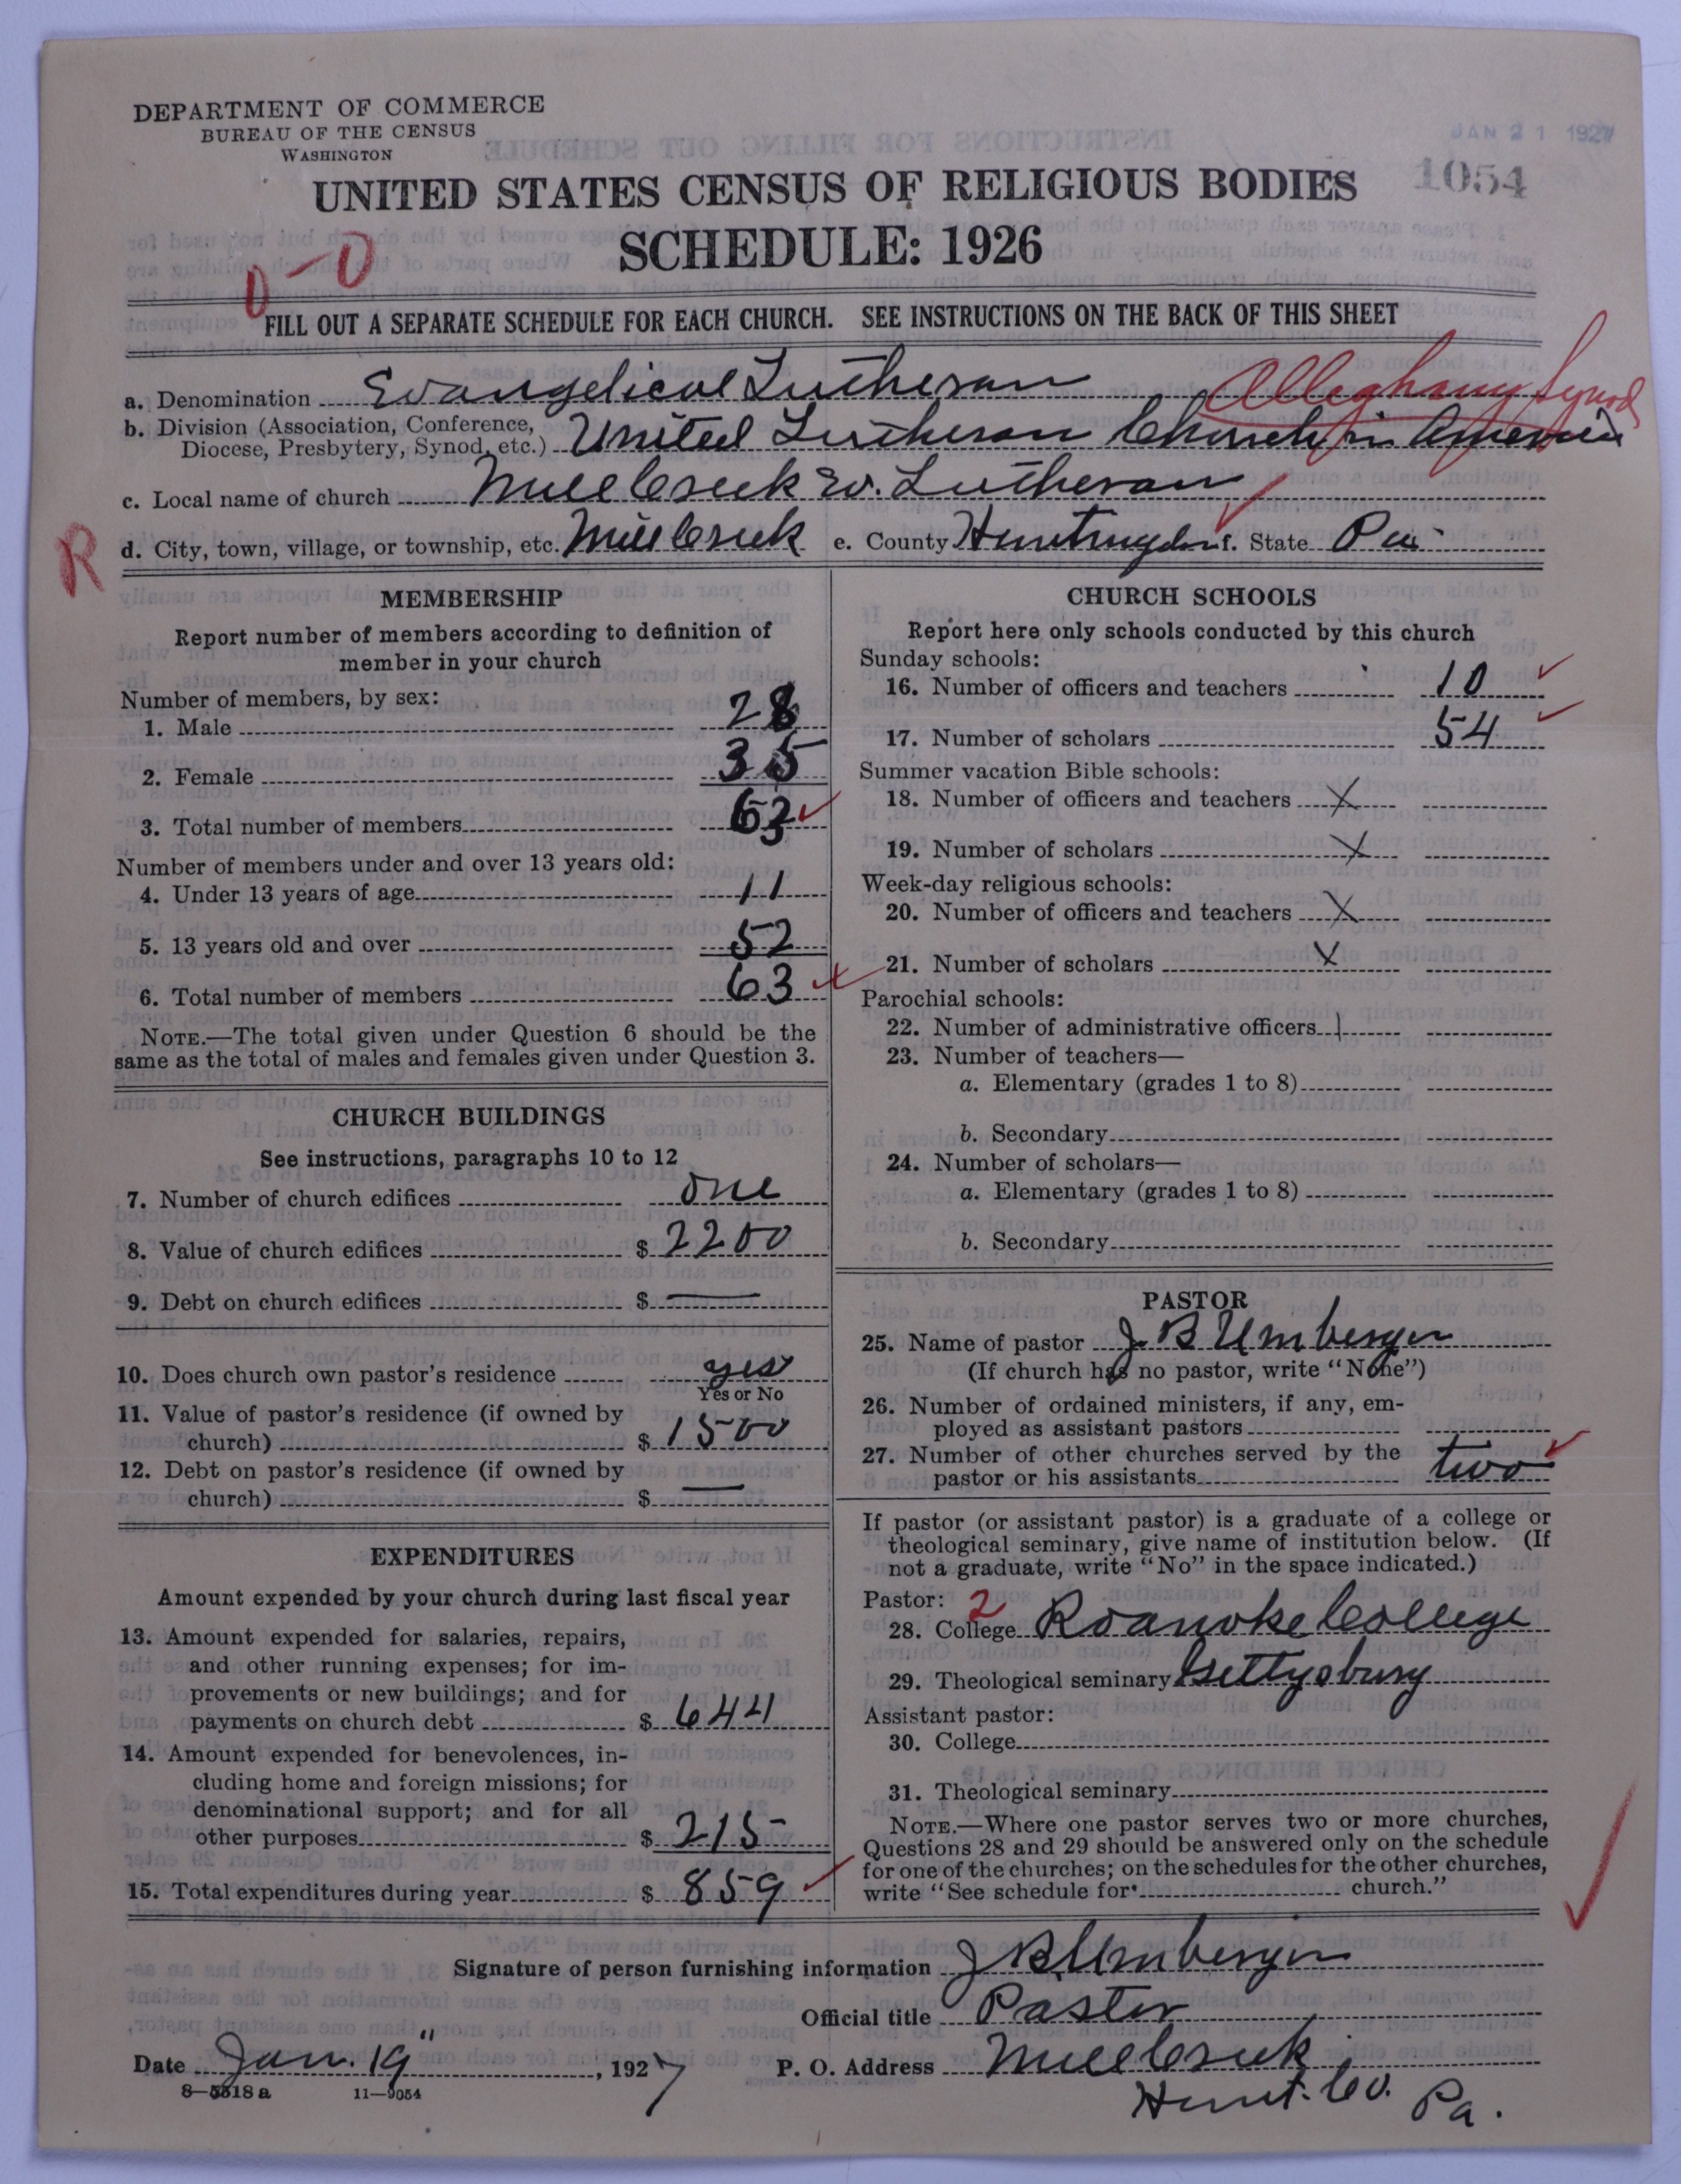 DEPARTMENT OF COMMERCE
BUREAU OF THE CENSUS
WASHINGTON
JAN 21 1927
1054
UNITED STATES CENSUS OF RELIGIOUS BODIES
SCHEDULE: 1926
0-0
FILL OUT A SEPARATE SCHEDULE FOR EACH CHURCH. SEE INSTRUCTIONS ON THE BACK OF THIS SHEET
a. Denomination Evangelical Lutheran Alleghany Synod
b. Division (Association, Conference,
Diocese, Presbytery, Synod, etc.) United Lutheran Church in America
c. Local name of church Mill Creek Ev. Lutheran
R
d. City, town, village, or township, etc. Mill Creek e. County Huntingdon f. State Pa.
MEMBERSHIP
Report number of members according to definition of
member in your church
Number of members, by sex:
1. Male 28
2. Female 35
3. Total number of members 63
Number of members under and over 13 years old:
4. Under 13 years of age 11
5. 13 years old and over 52
6. Total number of members 63
NOTE.—The total given under Question 6 should be the
same as the total of males and females given under Question 3.
CHURCH BUILDINGS
See instructions, paragraphs 10 to 12
7. Number of church edifices one
8. Value of church edifices $ 2200
9. Debt on church edifices $ —
10. Does church own pastor's residence yes
Yes or No
11. Value of pastor's residence (if owned by
church) $ 1500
12. Debt on pastor's residence (if owned by
church) $ —
EXPENDITURES
Amount expended by your church during last fiscal year
13. Amount expended for salaries, repairs,
and other running expenses; for im-
provements or new buildings; and for
payments on church debt $ 644
14. Amount expended for benevolences, in-
cluding home and foreign missions; for
denominational support; and for all
other purposes $ 215
15. Total expenditures during year $ 859
CHURCH SCHOOLS
Report here only schools conducted by this church
Sunday schools:
16. Number of officers and teachers 10
17. Number of scholars 54
Summer vacation Bible schools:
18. Number of officers and teachers X
19. Number of scholars X
Week-day religious schools:
20. Number of officers and teachers X
21. Number of scholars X
Parochial schools:
22. Number of administrative officers
23. Number of teachers—
a. Elementary (grades 1 to 8)
b. Secondary
24. Number of scholars—
a. Elementary (grades 1 to 8)
b. Secondary
PASTOR
25. Name of pastor J B Umberger
(If church has no pastor, write "None")
26. Number of ordained ministers, if any, em-
ployed as assistant pastors
27. Number of other churches served by the
pastor or his assistants two
If pastor (or assistant pastor) is a graduate of a college or
theological seminary, give name of institution below. (If
not a graduate, write "No" in the space indicated.)
Pastor: 2
28. College Roanoke College
29. Theological seminary Gettysburg
Assistant pastor:
30. College
31. Theological seminary
NOTE.—Where one pastor serves two or more churches,
Questions 28 and 29 should be answered only on the schedule
for one of the churches; on the schedules for the other churches,
write "See schedule for church."
Signature of person furnishing information J B Umberger
Official title Pastor
Date Jan. 19", 1927 P. O. Address Mill Creek
Hunt. Co. Pa.
8—5518 a 11—9054